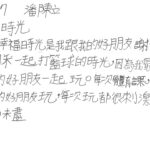 7 潘陳
時光
幸福時光是我跟我的好朋友
一起打籃球的時光,因為我
好朋友一起玩。每次體育課,
的好朋友玩,每次玩都很刺激
味盡